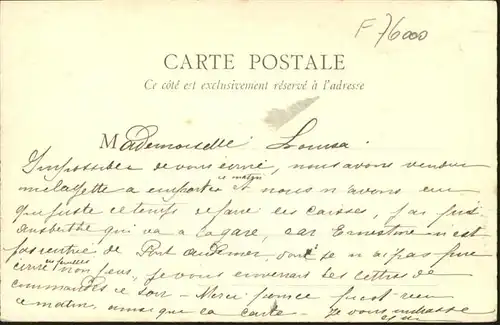 F 76000
CARTE POSTALE
Ce côté est exclusivement réservé à l'adresse
Mademoiselle Louisa
Impossible de vous écrire, nous avons vendu
ce matin
milayette a emporter et nous n'avons eu
que juste le temps de faire les caisses, j'ai
qui va a la gare, car Ernestine n'est
pas rentrée de Pont Audemer, je n'ai pas pu
écrire non plus, je vous enverrai les lettres de
commandes ce soir - Merci
ce matin, ainsi que la carte - Je vous embrasse